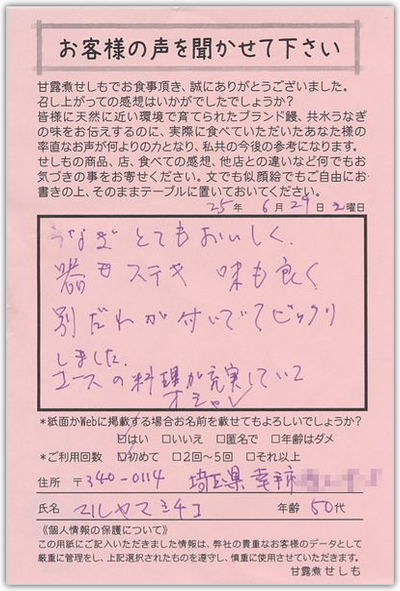 お客様の声を聞かせて下さい
甘露煮せしもでお食事頂き、誠にありがとうございました。
召し上がっての感想はいかがでしたでしょうか?
皆様に天然に近い環境で育てられたブランド鰻、共水うなぎ
の味をお伝えするのに、実際に食べていただいたあなた様の
率直なお声が何よりの力となり、私共の今後の参考になります。
せしもの商品、店、食べての感想、他店との違いなど何でもお
気づきの事をお寄せください。文でも似顔絵でもご自由にお
書きの上、そのままテーブルに置いておいてください。
25年 6月29日 土曜日
うなぎ とてもおいしく、
器もステキ 味も良く
別だれが付いていてビックリ
しました。
コースの料理が充実していて
オシャレ
*紙面かWebに掲載する場合お名前を載せてもよろしいでしょうか?
□はい □いいえ □匿名で □年齢はダメ
*ご利用回数 □初めて □2回~5回 □それ以上
住所 〒340-0114 埼玉県幸手市
氏名 マルヤマミチコ 年齢 50代
《個人情報の保護について》
この用紙にご記入いただきました情報は、弊社の貴重なお客様のデータとして
厳重に管理をし、上記選択されたものを遵守し、慎重に使用させていただきます。
甘露煮せしも